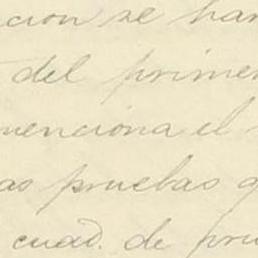 cion se han
del primer
menciona el
as pruebas q
cuad. de pru